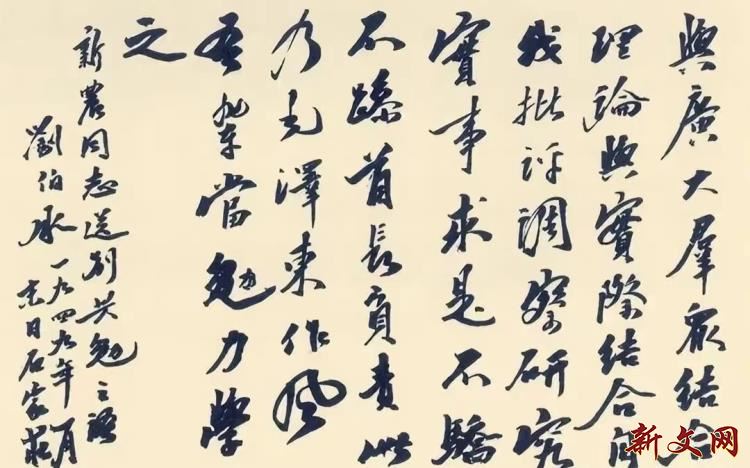 與廣大羣衆結合
理論與實際結合自
我批評調察研究
實事求是不驕
不躁首長負責此
乃毛澤東作風
吾輩當勉力學
之
新農同志送別共勉之語
劉伯承 一九四九年一月
末日石家莊
新文网